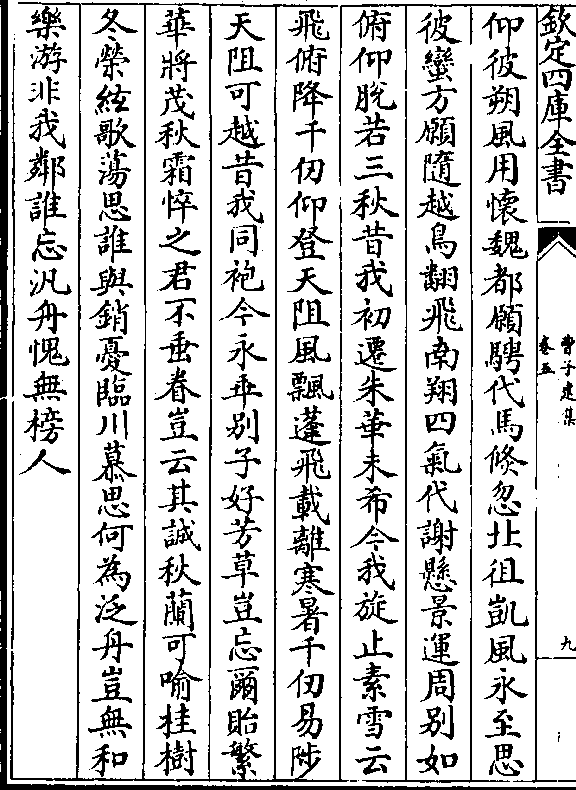 欽定四庫全書
曹子建集
卷五
九
仰彼朔風用懷魏都願騁代馬倐忽北徂凱風永至思
彼蠻方願隨越鳥翻飛南翔四氣代謝懸景運周别如
俯仰脫若三秋昔我初遷朱華未希今我旋止素雪云
飛俯降千仞仰登天阻風飄蓬飛載離寒暑千仞易陟
天阻可越昔我同袍今永乖别子好芳草豈忘爾貽繁
華將茂秋霜悴之君不垂眷豈云其誠秋蘭可喻桂樹
冬榮絃歌蕩思誰與銷憂臨川慕思何為泛舟豈無和
樂游非我鄰誰忘汎舟愧無榜人